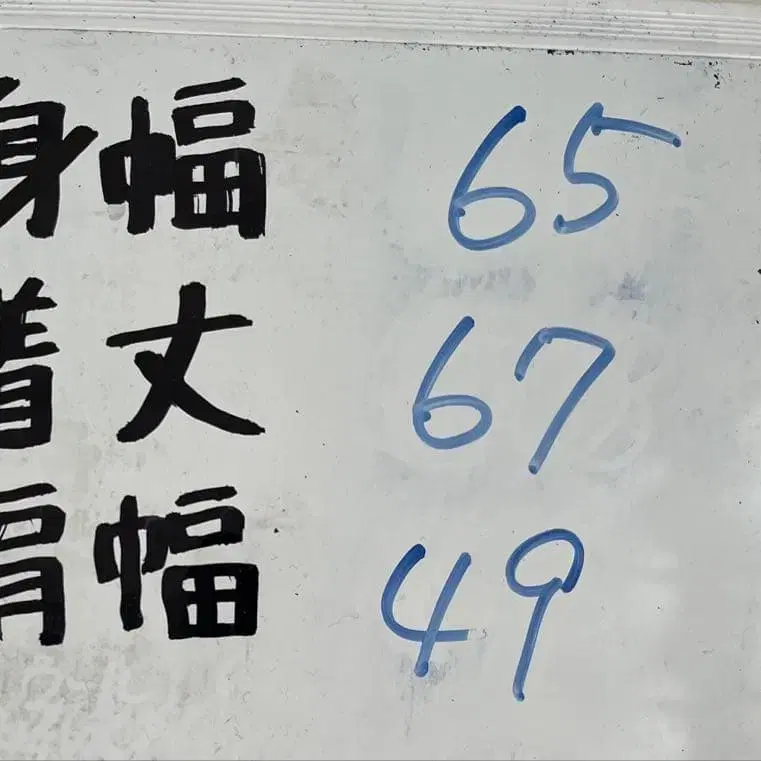 身幅 65
着丈 67
肩幅 49